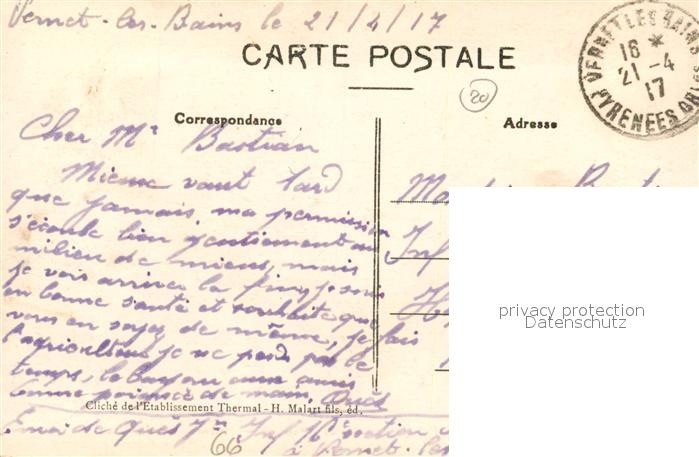 Vernet-les-Bains le 21/4/17
CARTE POSTALE
VERNET LES BAINS
16 *
21-4
17
PYRENEES ORles
20
Correspondance
Adresse
Cher Mr Bastian
Mieux vaut tard
que jamais, ma permission
s'écoule bien gentiment au
milieu de miens, mais
je vois arriver la fin, je suis
en bonne santé et souhaite que
vous en soyez de même, je fais
l'agriculteur je ne perds pas le
temps, le bonjour aux amis
bonne poignée de main,
Cliché de l'Etablissement Thermal - H. Malart fils, éd.
Inf
66
à Vernet-les
privacy protection
Datenschutz